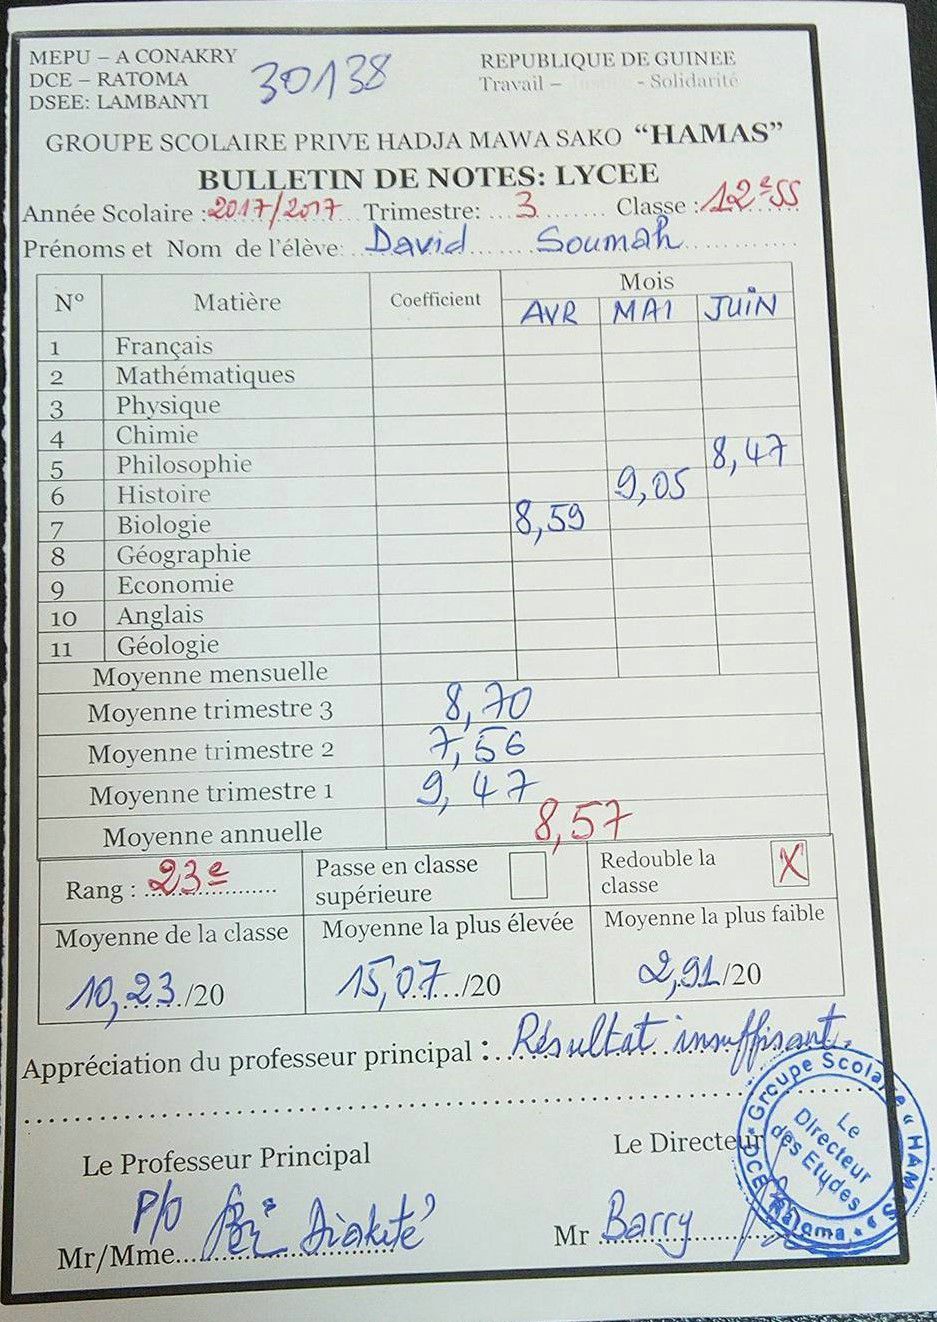 MEPU – A CONAKRY
DCE – RATOMA
DSEE: LAMBANYI
30138
REPUBLIQUE DE GUINEE
Travail – - Solidarité
GROUPE SCOLAIRE PRIVE HADJA MAWA SAKO “HAMAS”
BULLETIN DE NOTES: LYCEE
Année Scolaire : 2017/2017 Trimestre: 3 Classe : 12e SS
Prénoms et Nom de l'élève: David Soumah
N° Matière Coefficient Mois
AVR MAI JUIN
1 Français
2 Mathématiques
3 Physique
4 Chimie
5 Philosophie 8,47
6 Histoire 9,05
7 Biologie 8,59
8 Géographie
9 Economie
10 Anglais
11 Géologie
Moyenne mensuelle
Moyenne trimestre 3 8,70
Moyenne trimestre 2 7,56
Moyenne trimestre 1 9,47
Moyenne annuelle 8,57
Rang : 23e
Passe en classe supérieure
Redouble la classe X
Moyenne de la classe Moyenne la plus élevée Moyenne la plus faible
10,23/20 15,07/20 2,91/20
Appréciation du professeur principal : Résultat insuffisant.
Le Professeur Principal Le Directeur
P/o Diakité
Mr/Mme Mr Barry
Groupe Scolaire « HAMAS »
DCE Ratoma
Le
Directeur
des Etudes